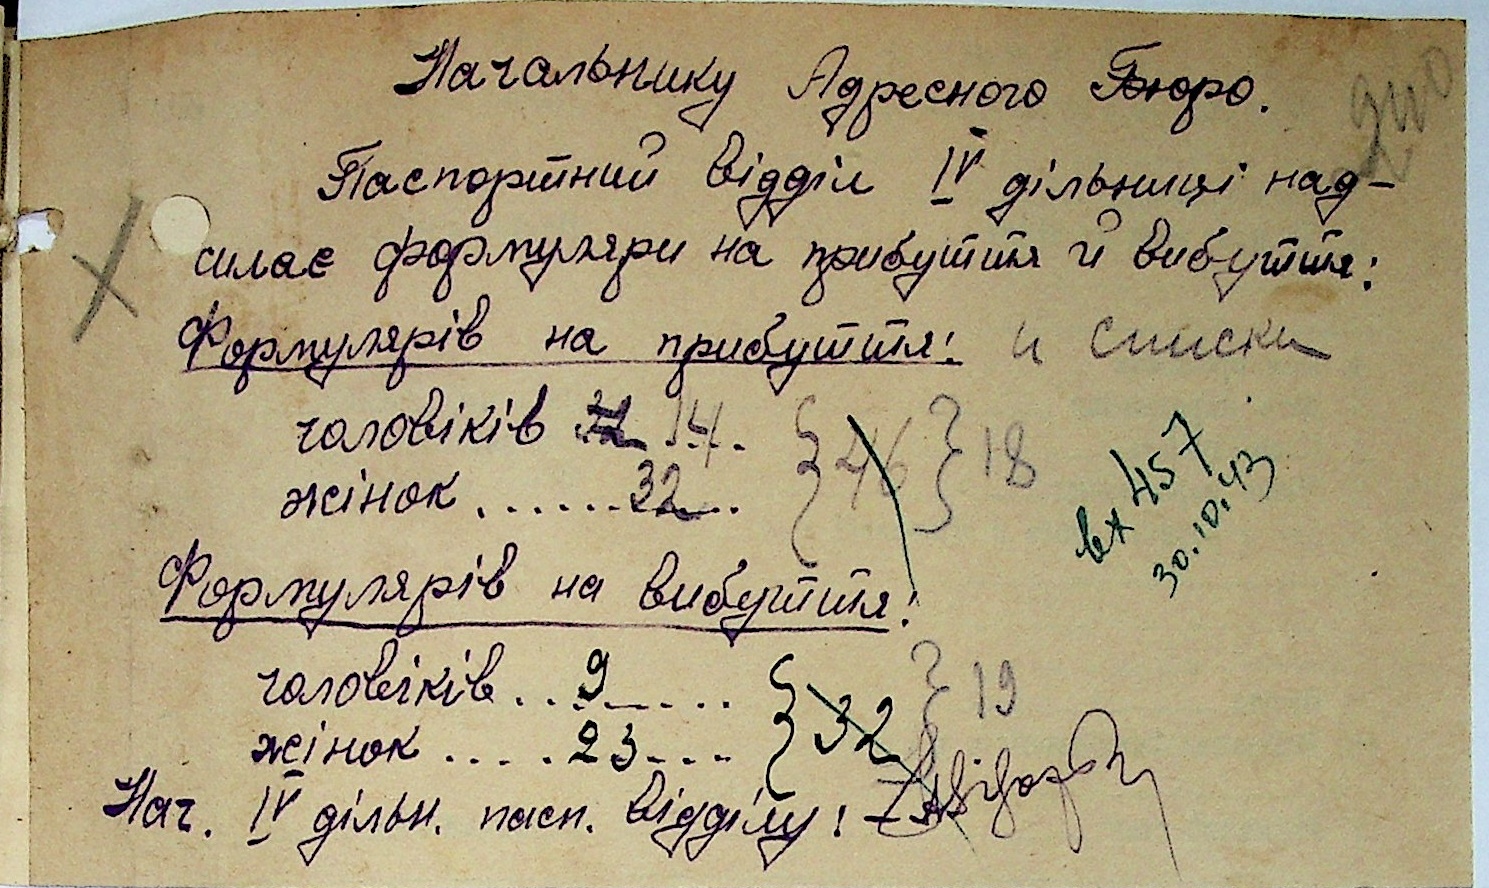 Начальнику Адресного Бюро.
Паспортний відділ IV дільниці над-
силає формуляри на прибуття й вибуття:
Формулярів на прибуття: и списки
чоловіків 14 } 46 } 18
жінок ...... 32 ..
вх 457
30.10.43
Формулярів на вибуття:
чоловіків .. 9 ..... } 32 } 19
жінок .... 23 ...
Нач. IV дільн. пасп. відділу: